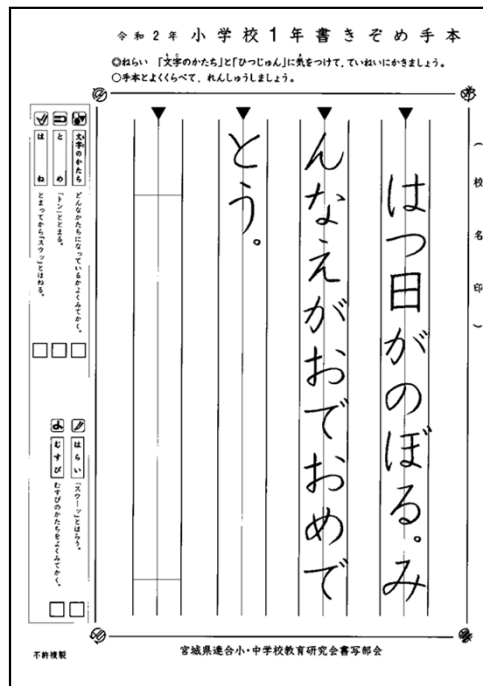 令和2年 小学校1年書きぞめ手本
◎ねらい 「文字のかたち」と「ひつじゅん」に気をつけて、ていねいにかきましょう。
○手本とよくくらべて、れんしゅうしましょう。
(校名印)
はつ日がのぼる。み
んなえがおでおめで
とう。
文字のかたち どんなかたちになっているかよくみてかく。
とめ 「トン」ととまる。
はね とまってから「スウッ」とはねる。
はらい 「スウーッ」とはらう。
むすび むすびのかたちをよくみてかく。
宮城県連合小・中学校教育研究会書写部会
不許複製